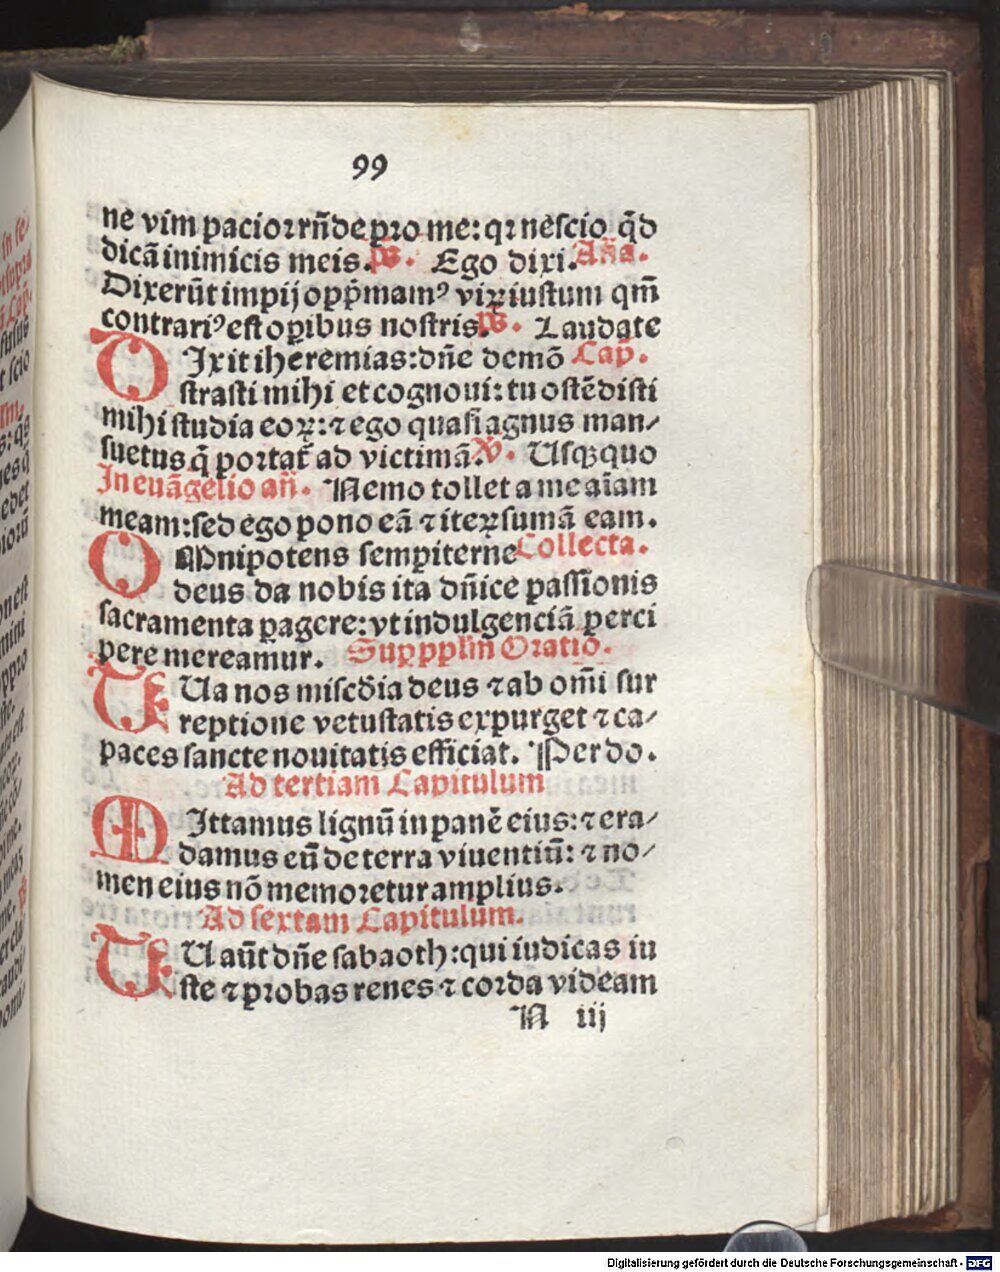 99
nē vim pacior rn̄de pro me: qꝛ nescio qd̄
dicā inimicis meis. ps. Ego dixi. Ana.
Dixerūt impij opp̄mamꝰ virꝫ iustum qm̄
contrariꝰ est oꝑibus nostris. ps. Laudate
DIxit iheremias: dn̄e demō Cap̄.
strasti mihi et cognoui: tu ostēdisti
mihi studia eoꝝ: ⁊ ego quasi agnus man⸗
suetus q̄ portat̄ ad victimā. V. Usqꝫquo
In euāgelio an̄. Nemo tollet a me aīam
meam: sed ego pono eā ⁊ iteꝝ sumā eam.
OMnipotens sempiterne Collecta.
deus da nobis ita dn̄ice passionis
sacramenta ꝑagere: vt indulgenciā ꝑerci
pere mereamur. Suꝑ pplm̄ Oratio.
TUa nos misc̄dia deus ⁊ ab om̄i sur
reptione vetustatis expurget ⁊ ca⸗
paces sancte nouitatis efficiat. Per do.
Ad tertiam Capitulum
MIttamus lignū in panē eius: ⁊ era⸗
damus eū de terra viuentiū: ⁊ no⸗
men eius nō memoretur amplius.
Ad sextam Capitulum.
TU aūt dn̄e sabaoth: qui iudicas iu
ste ⁊ probas renes ⁊ corda videam
N iij
Digitalisierung gefördert durch die Deutsche Forschungsgemeinschaft - DFG